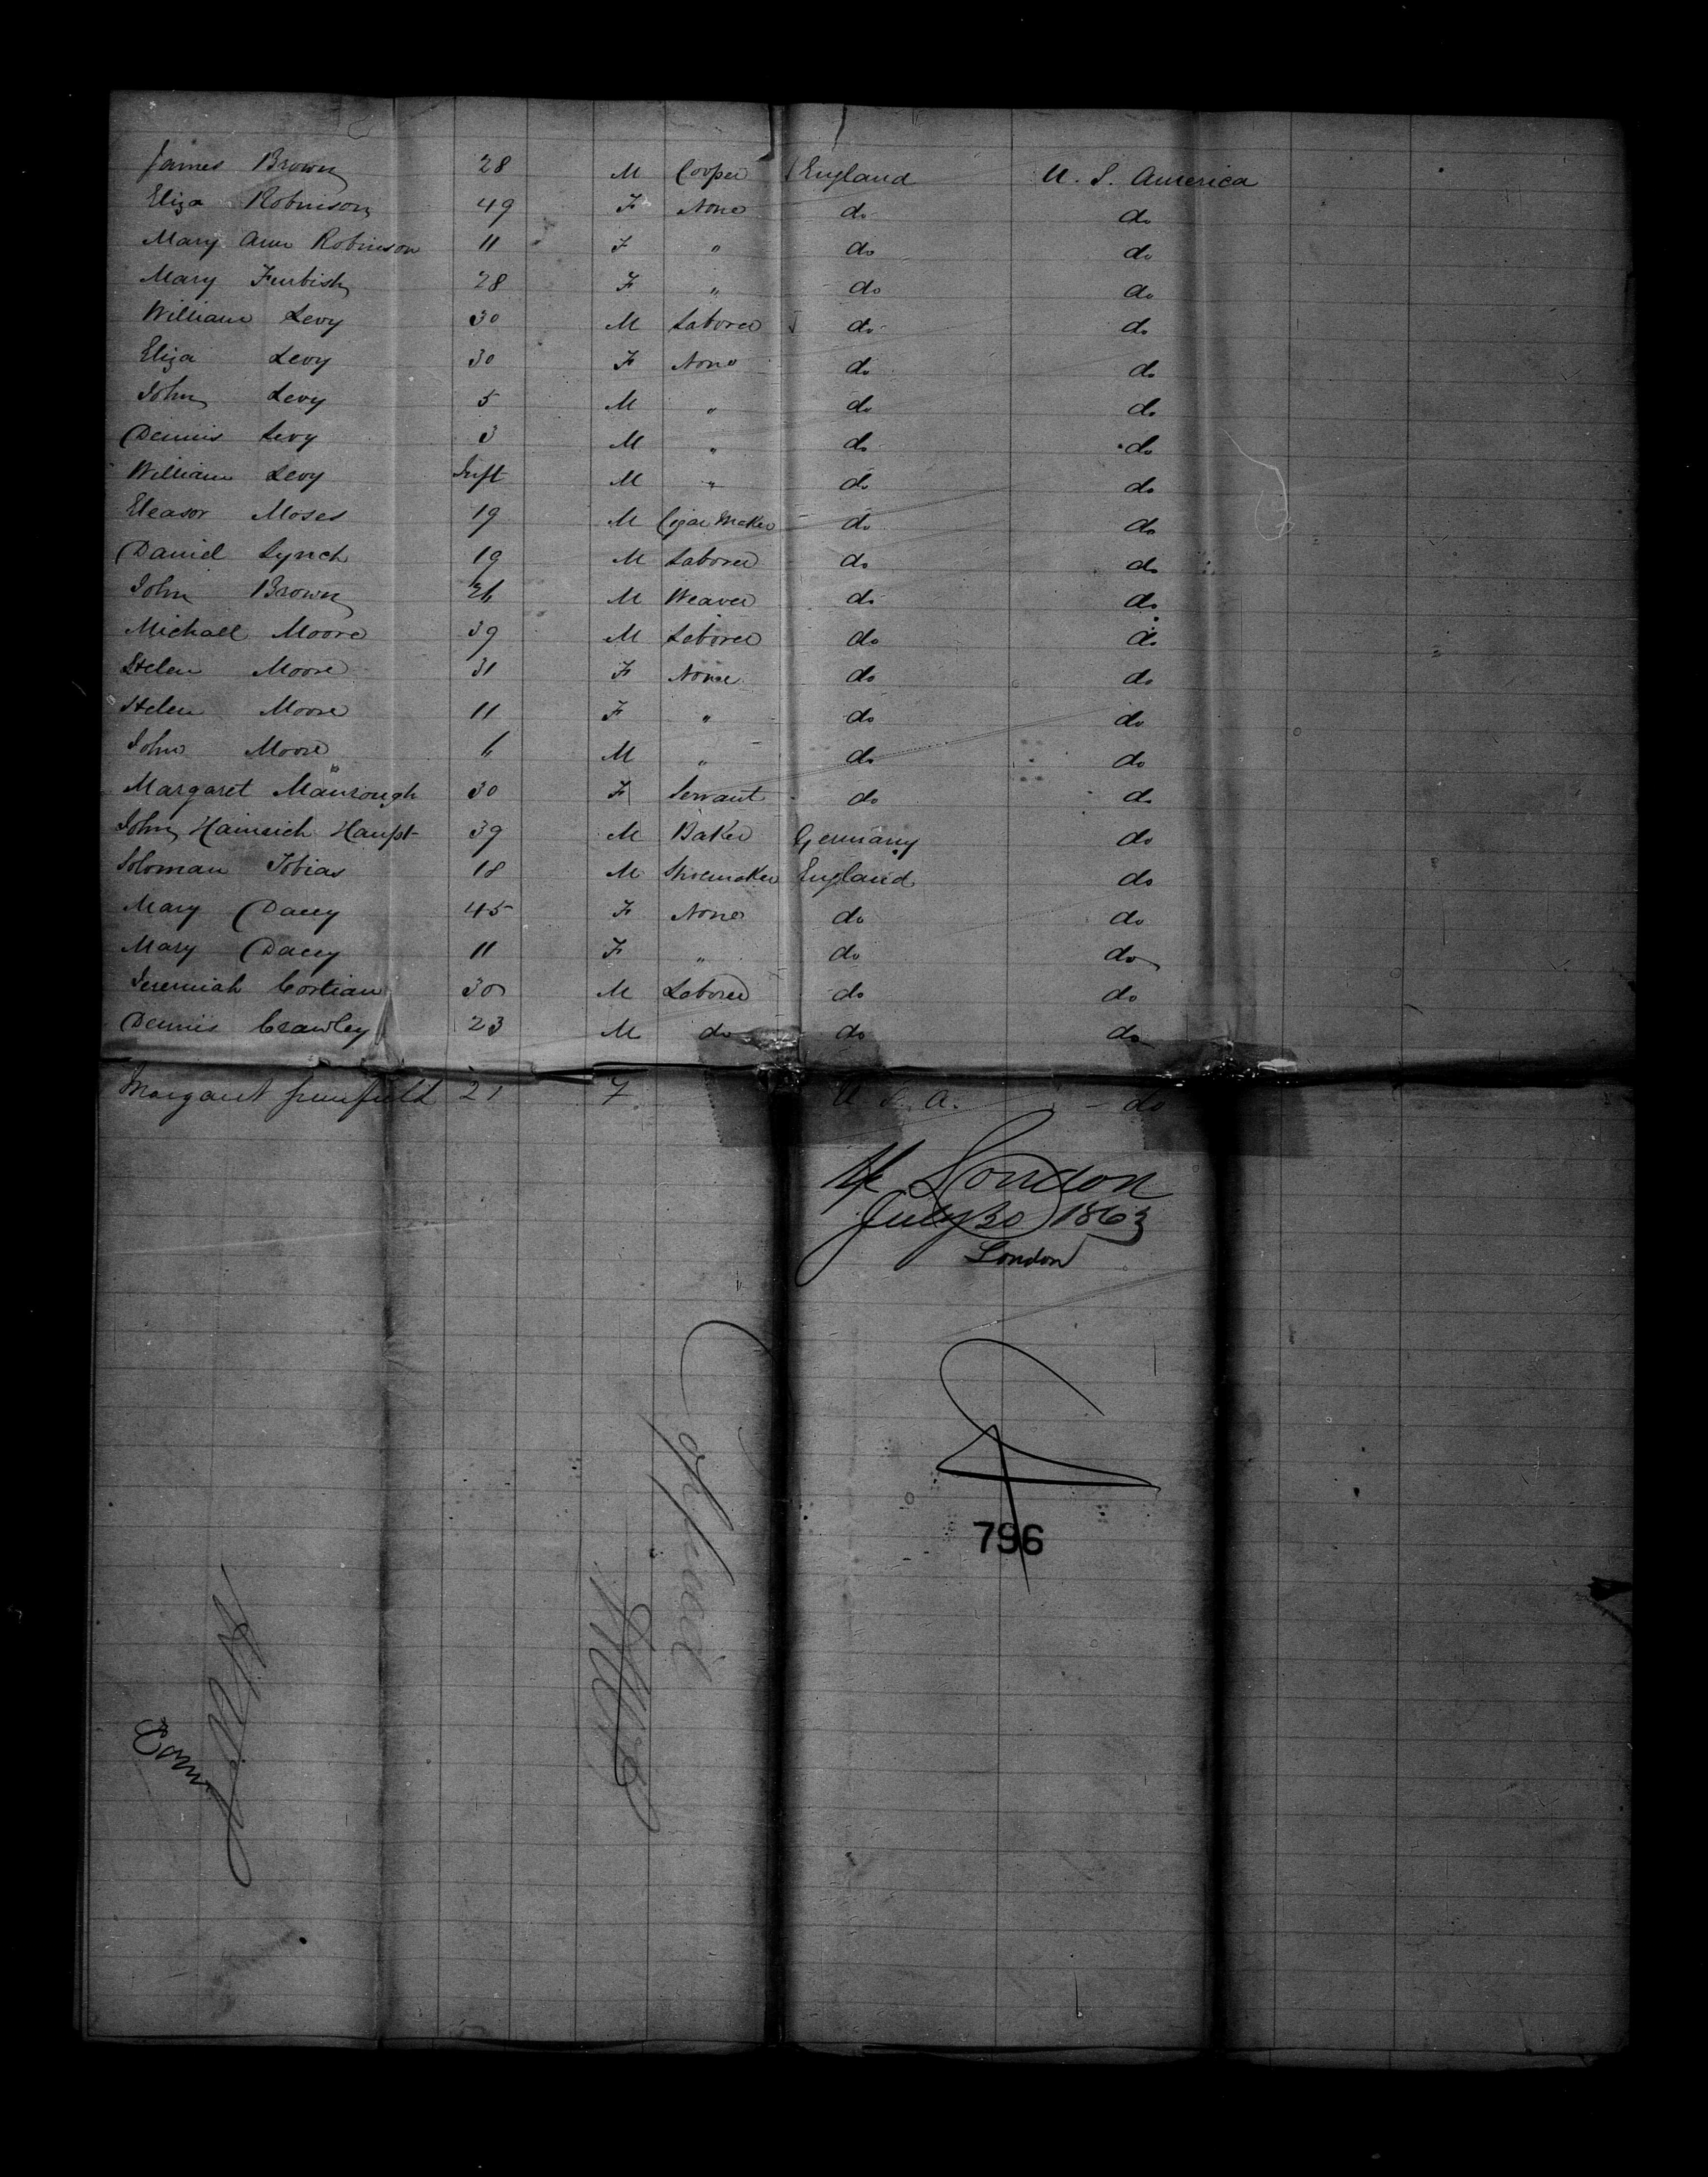 James Brown 28 M Cooper England U. S. America
Eliza Robinson 49 F None do do
Mary Ann Robinson 11 F " do do
Mary Furbish 28 F " do do
William Levy 30 M Laborer do do
Eliza Levy 30 F None do do
John Levy 5 M " do do
Dennis Levy 3 M " do do
William Levy Inft M " do do
Eleasor Moses 19 M Cigar Maker do do
Daniel Lynch 19 M Laborer do do
John Brown 26 M Weaver do do
Michael Moore 39 M Laborer do do
Helen Moore 31 F None do do
Helen Moore 11 F " do do
John Moore 6 M " do do
Margaret Manrough 30 F Servant do do
John Hainrich Haupt 39 M Baker Germany do
Soloman Tobias 18 M Shoemaker England do
Mary Dacey 45 F None do do
Mary Dacey 11 F " do do
Jeremiah 30 M Laborer do do
Dennis Crawley 23 M do do do
Margaret 21 F U. S. A. - do
London
July 30 1863
London
796